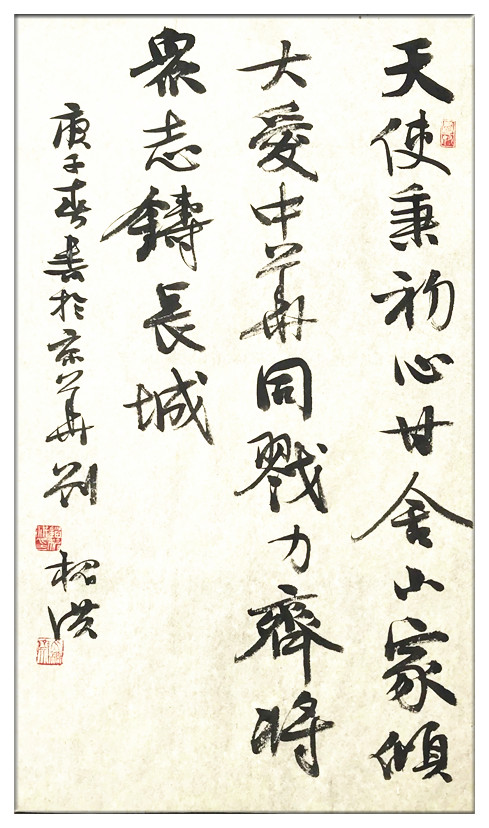 天使秉初心甘舍小家傾
大愛中華同戮力齊將
眾志鑄長城
庚子春書於京華劉
松洪